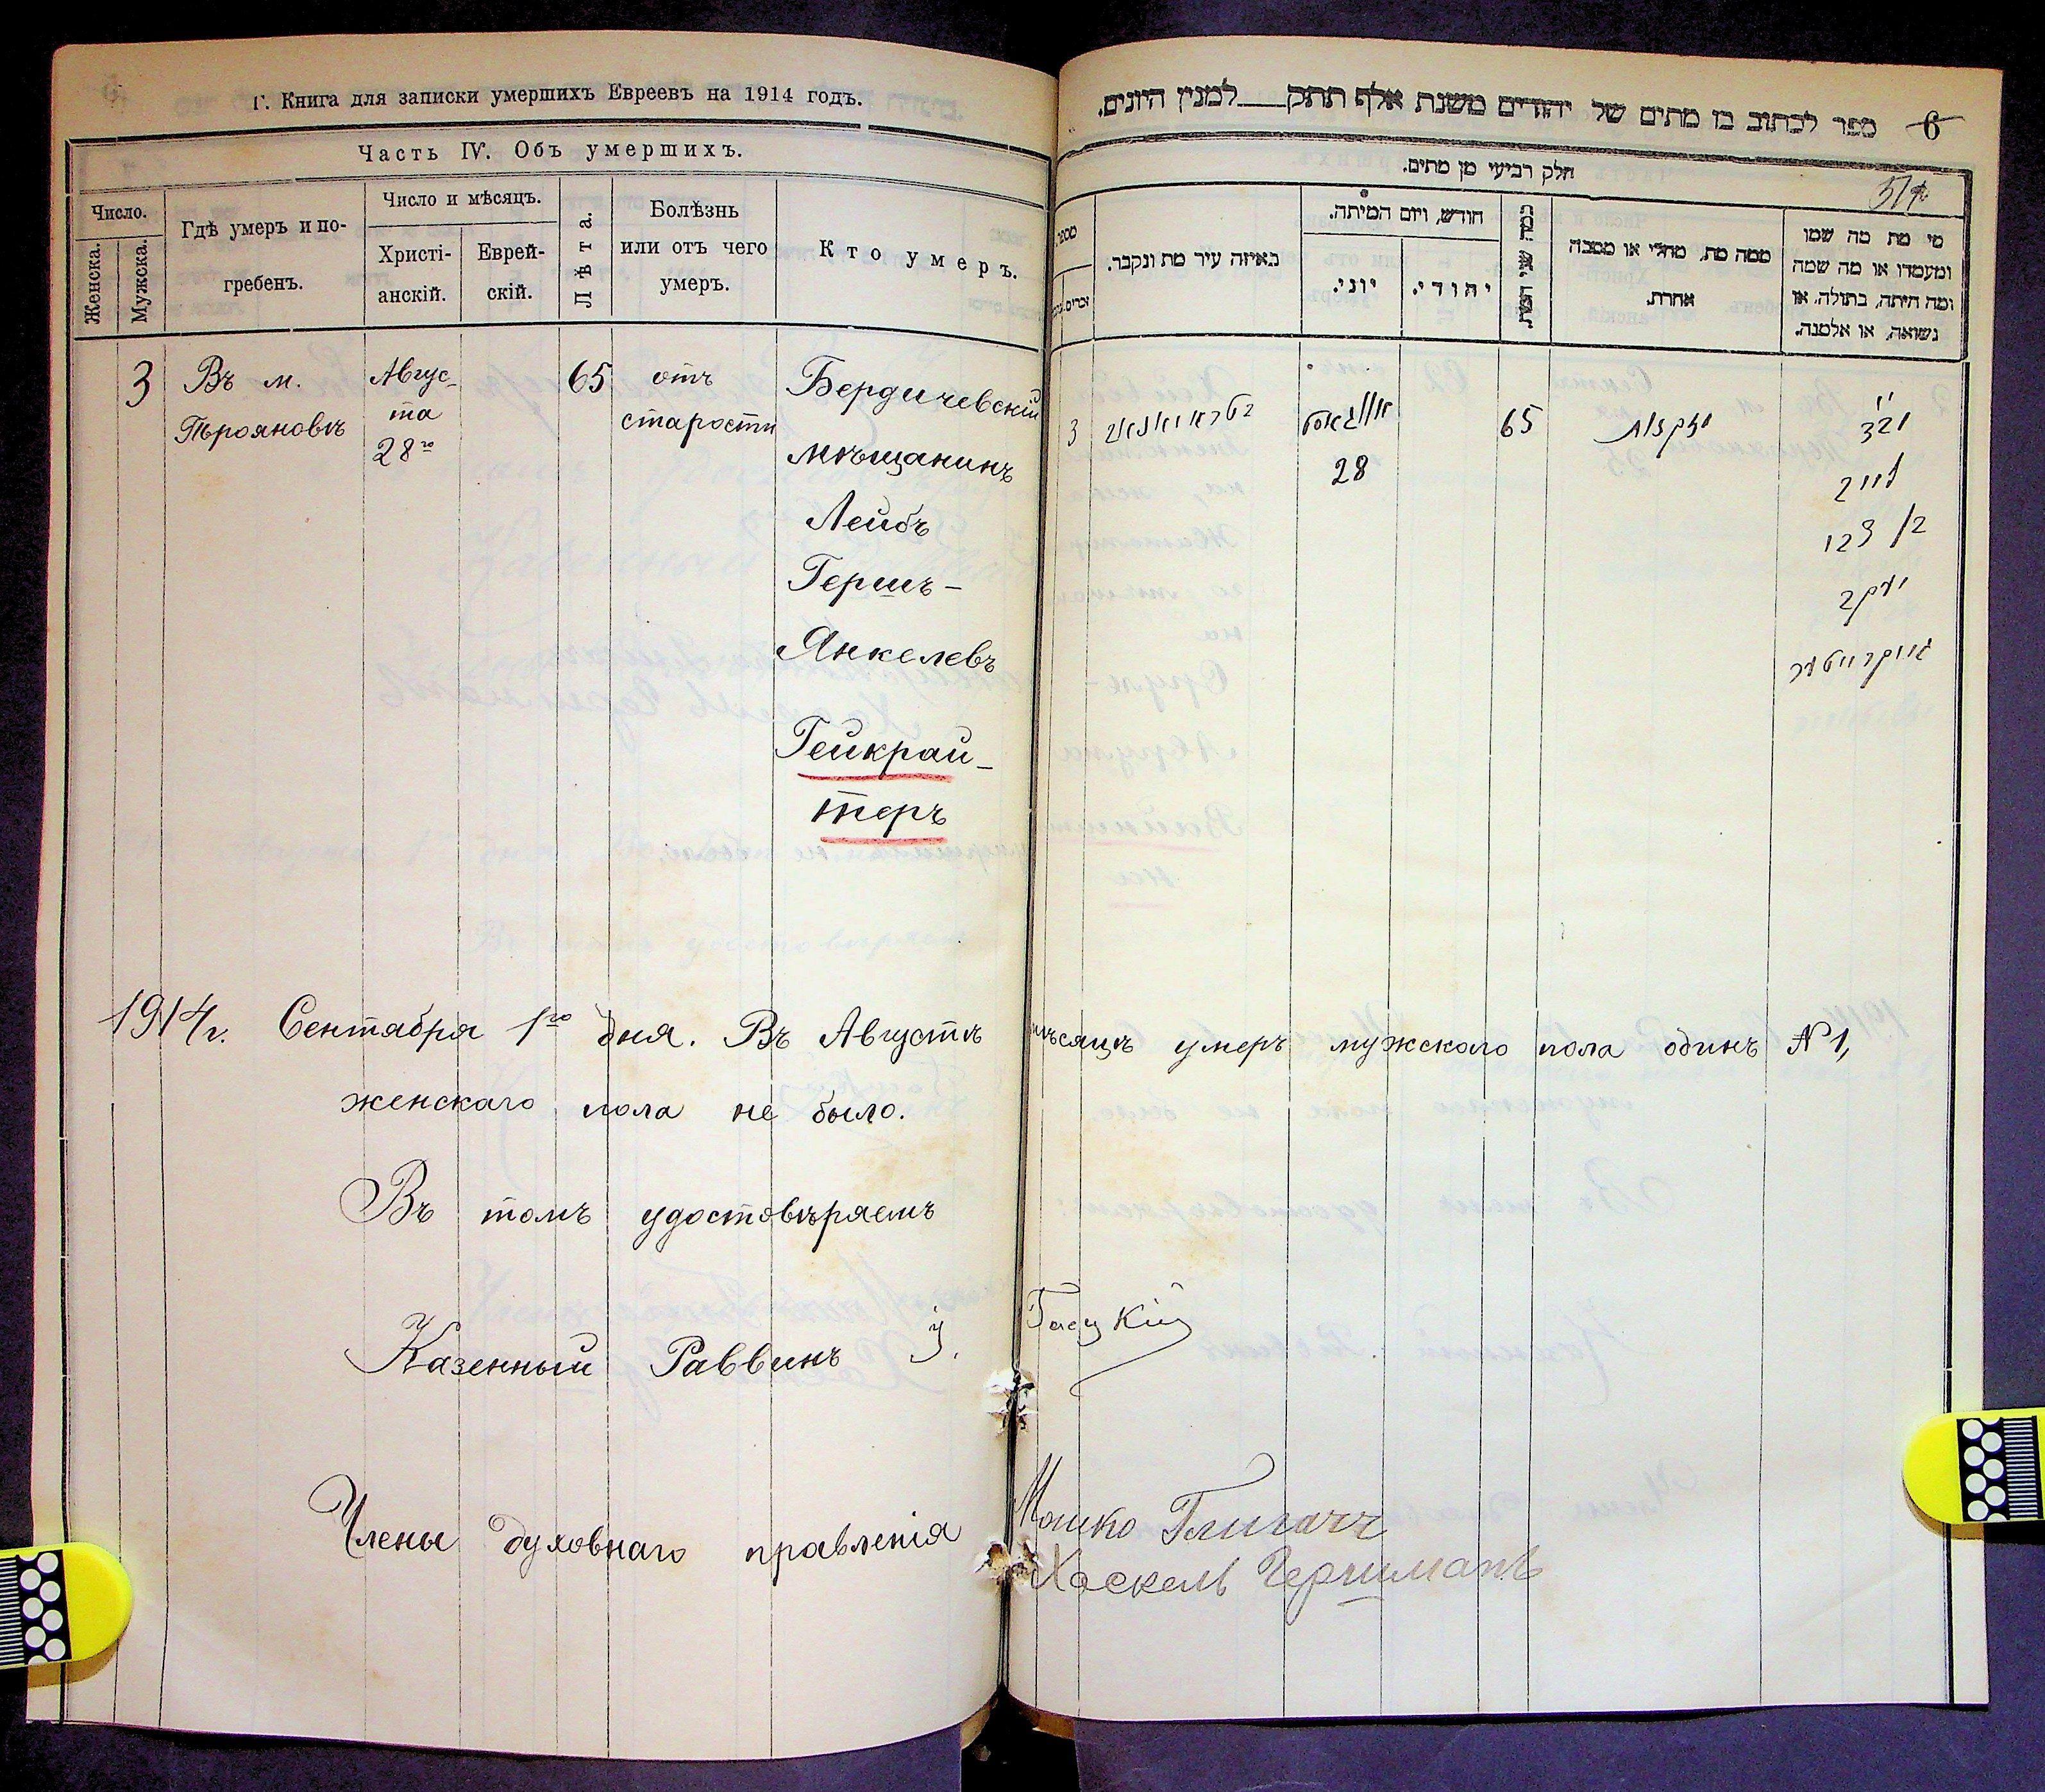 Г. Книга для записки умершихъ Евреевъ на 1914 годъ.
Часть IV. Объ умершихъ.
Число.
Женска.
Мужска.
Гдѣ умеръ и по-
гребенъ.
Число и мѣсяцъ.
Христі-
анскій.
Еврей-
скій.
Лѣта.
Болѣзнь
или отъ чего
умеръ.
Кто умеръ.
3
Въ м.
Трояновѣ
Авгус-
та
28го
65
отъ
старости
Бердичевскій
мѣщанинъ
Лейбъ
Гершъ-
Янкелевъ
Гейкрай-
теръ
6
ספר לכתוב בו מתים של יהודים משנת אלף תתק למנין היונים.
חלק רביעי מן מתים.
באיזה עיר מת ונקבר.
חודש, ויום המיתה.
יוני.
יהודי.
ממה מת, מחלי או מסבה
אחרת.
מי מת מה שמו
ומעמדו או מה שמה
ומה היתה, בתולה, או
נשואה, או אלמנה.
3
אווגאסט
28
65
מזקנות
לייב
בן הירש
יעקב
גייקרייטער
1914 г. Сентября 1го дня. Въ Августѣ мѣсяцѣ умеръ мужского пола одинъ №1,
женскаго пола не было.
Въ томъ удостовѣряемъ
Казенный Раввинъ
Члены духовнаго правленія Мошко
Хаскель Гершманъ